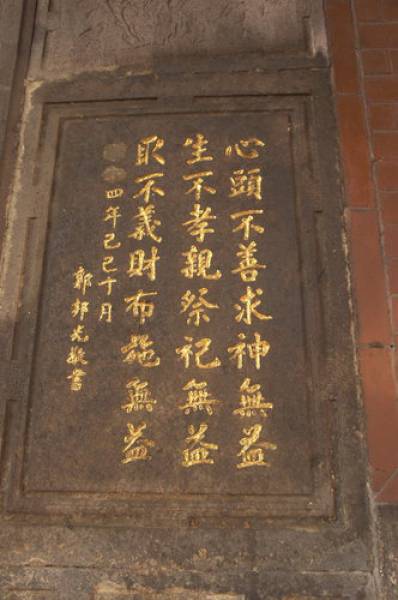 心頭不善求神無益
生不孝親祭祀無益
取不義財布施無益
四年己巳十月
郭邦光敬書